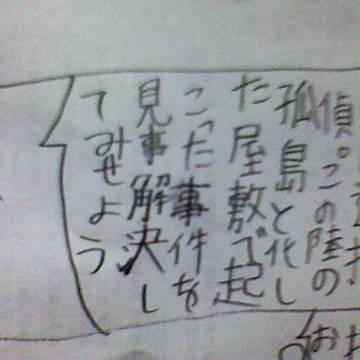 偵。この陸の
孤島と化し
た屋敷で起
こった事件を
見事解決し
てみせよう
お